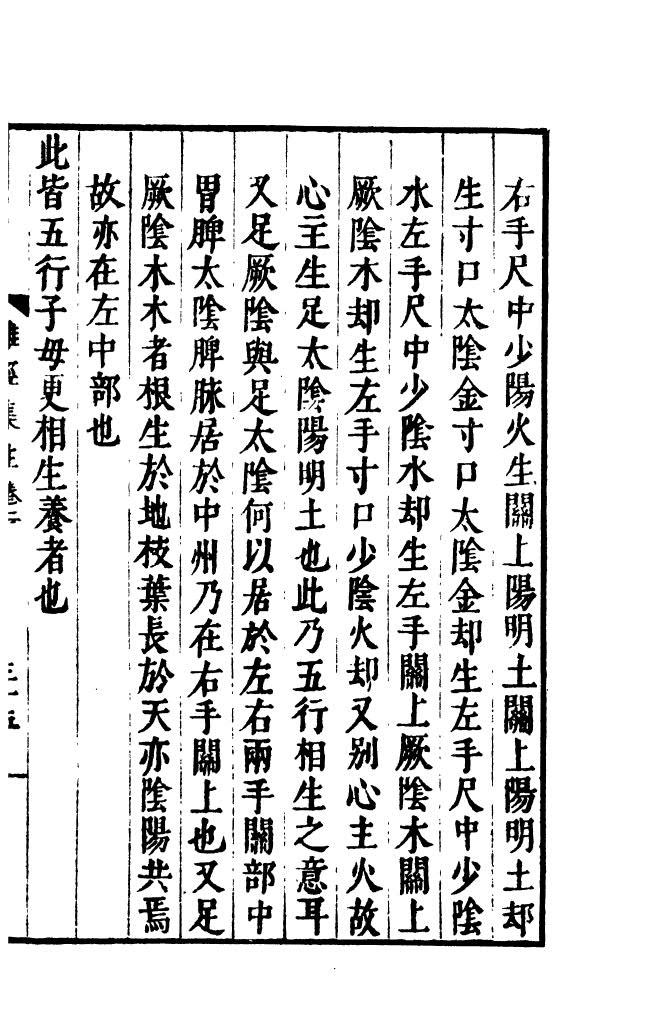 右手尺中少陽火生關上陽明土關上陽明土却
生寸口太陰金寸口太陰金却生左手尺中少陰
水左手尺中少陰水却生左手關上厥陰木關上
厥陰木却生左手寸口少陰火却又别心主火故
心主生足太陰陽明土也此乃五行相生之意耳
又足厥陰與足太陰何以居於左右兩手關部中
胃脾太陰脾脉居於中州乃在右手關上也又足
厥陰木木者根生於地枝葉長於天亦陰陽共焉
故亦在左中部也
此皆五行子母更相生養者也
難經集註卷二